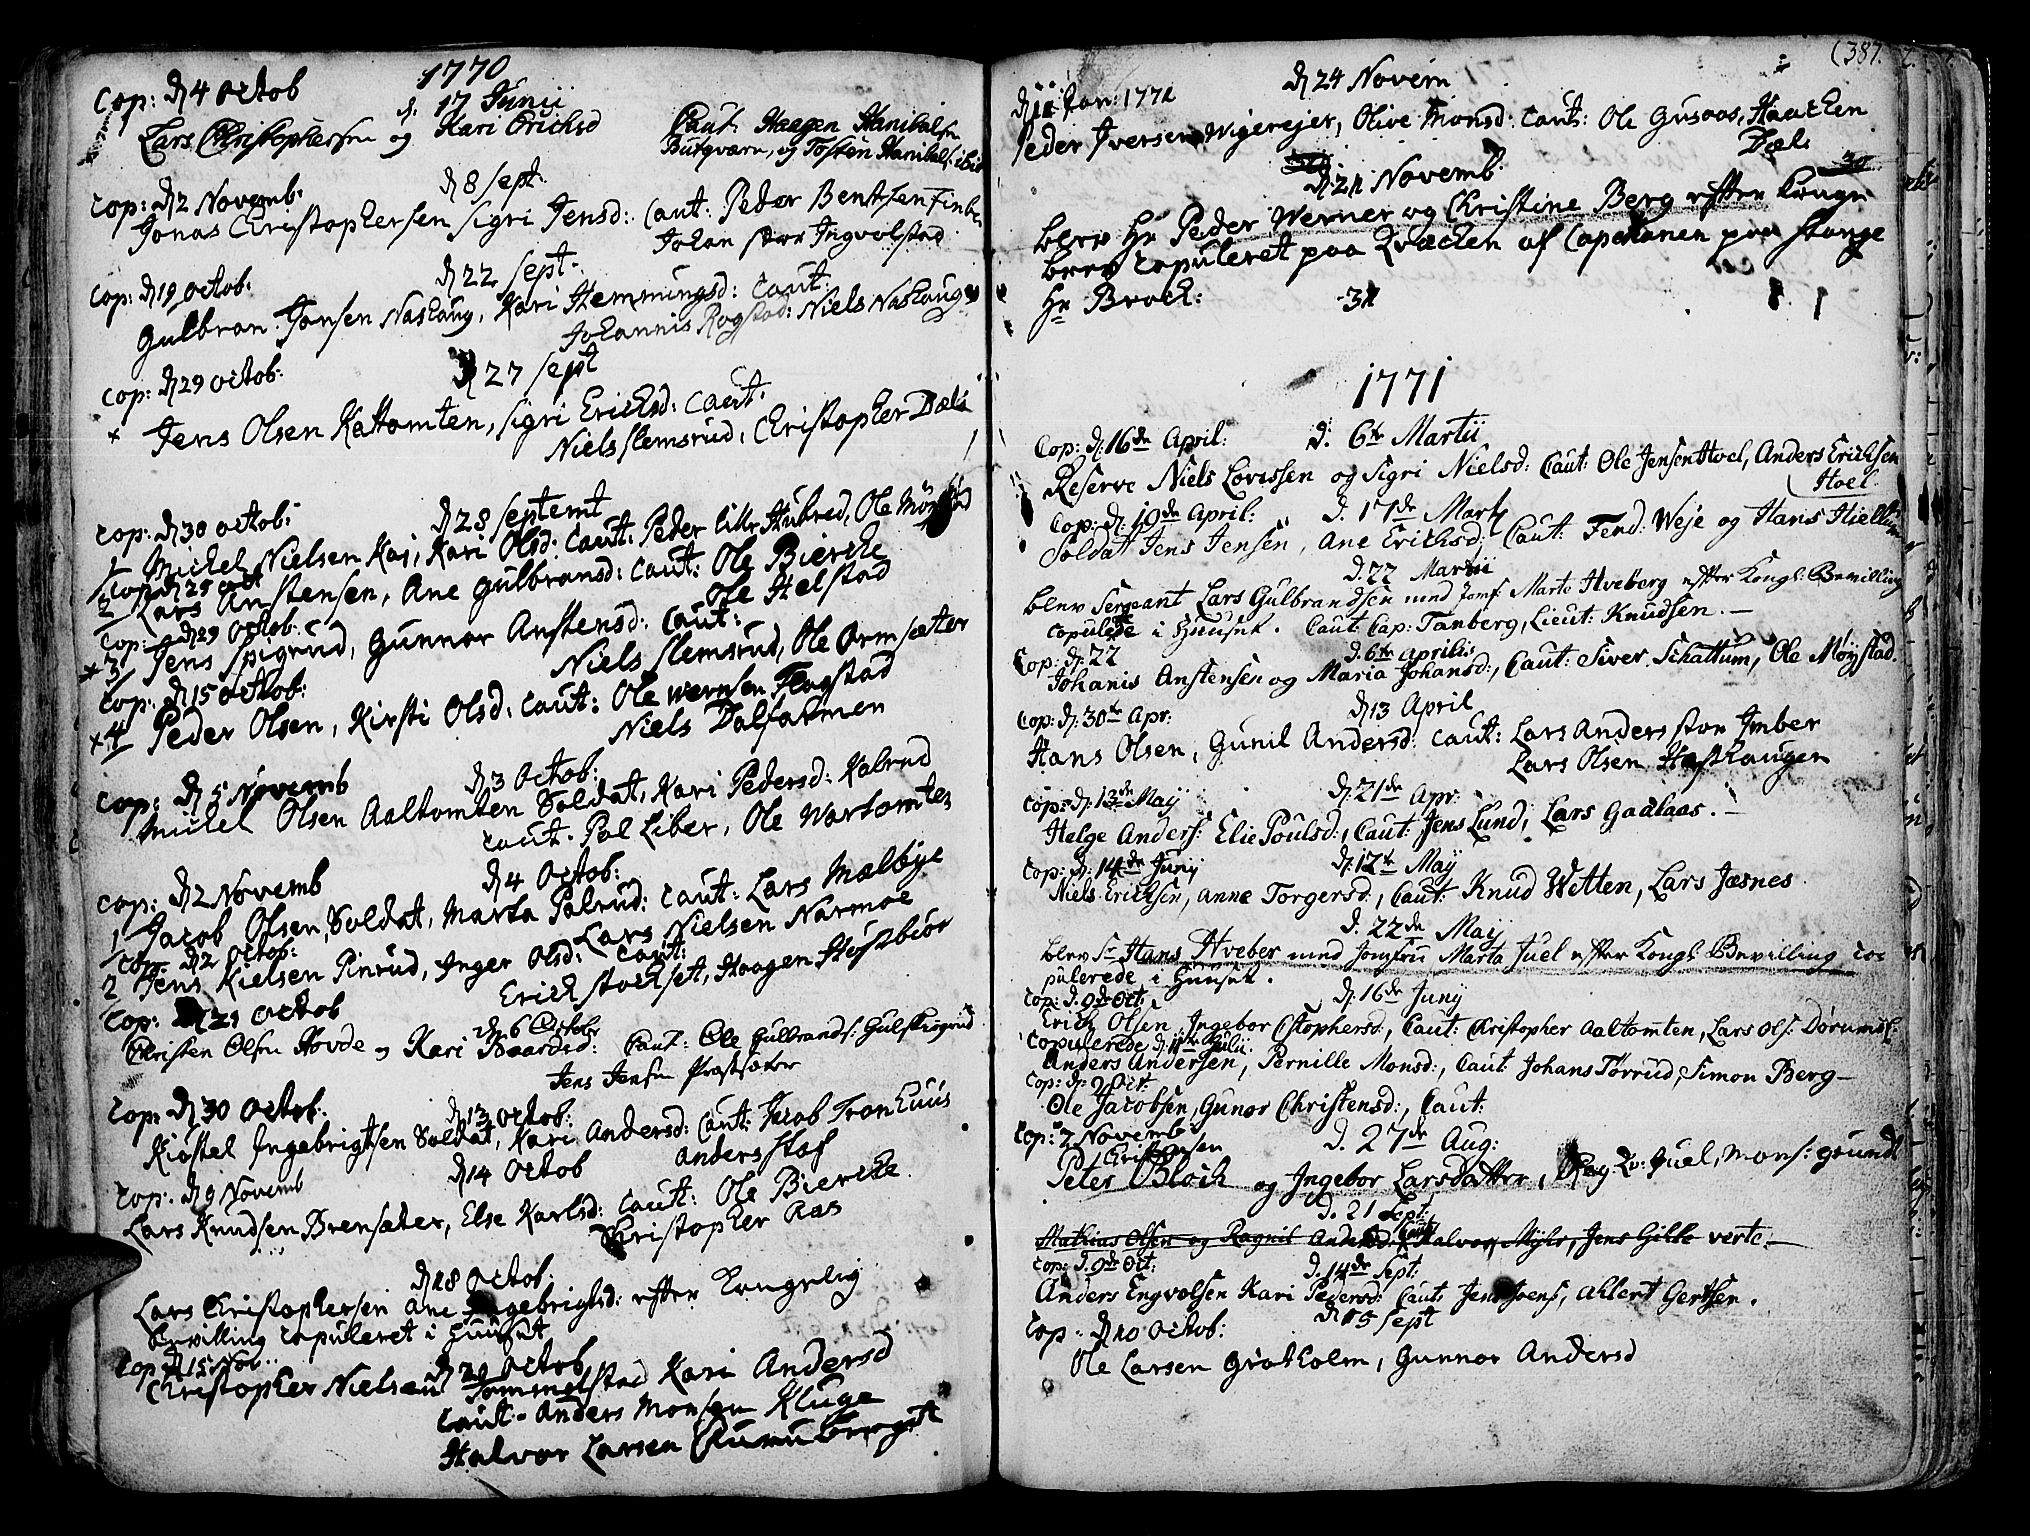 1770
Cop: d 4 Octob
d. 17 Junii
Lars Christophersen og Kari Erichsd Caut: Haagen Hanibalsen
Burgværn, og Tosten Hanibals: ibid
Cop: d 2 Novemb:
d 8 Sept:
Jonas Christophersen Sigri Jensd: Caut: Peder Bentsen Finbe
Johan Ingvolstad
Cop: d 19 Octob:
d 22 Sept:
Gulbran Jonsen Naskoug, Kari Hemmingsd: Caut:
Johannis Rogstad: Niels Naskoug
Cop: d 29 Octob:
d 27 Sept
x Jens Olsen Kattomten, Sigri Erichsd: Caut:
Niels Slemsrud, Christopher Dæli
Cop: d 30 Octob:
d 28 Septemt
1 Michel Nielsen Kaj, Kari Olsd: Caut: Peder Lille Hubred, Ole
Cop: d 25 Oct
2 Lars Anstensen, Ane Gulbransd: Caut: Ole Biercke
Ole Helstad
Cop: d 29 Octob:
x 3/ Jens Spigrud, Gunnor Anstensd: Caut:
Niels Slemsrud, Ole Ormsæter
Cop: d 15 Octob:
x 4 Peder Olsen, Kirsti Olsd: Caut: Ole Wernsen Flagstad
Niels Dalfarmen
Cop: d 5 Novemb
d 3 Octob:
Michel Olsen Aaltomten Soldat, Kari Pedersd: Kalrud
Caut: Pol Liber, Ole Wartomten
Cop: d 2 Novemb
d 4 Octob:
1 Jacob Olsen, Soldat, Marta Palrud: Caut: Lars Mælbye
Lars Nielsen Narmoe
Cop: d 2 Octob:
2 Jens Kielsen Pinrud, Inger Olsd: Caut:
Erich Stochset, Haagen Høstbiør
Cop: d 29 Octob
d 6 Octobr
Christen Olsen Hovde og Kari Baardsd: Caut: Ole Gulbrands:
Jens Jensen Præstsæter
Cop: d 30 Octob:
d 13 Octob:
Kiøstel Ingebrigtsen Soldat, Kari Andersd: Caut: Jacob Tronhuus
Anders Staf
Cop: d 9 Novemb
d 14 Octob
Lars Knudsen Brensæter, Else Karlsd: Caut: Ole Biercke
Christopher Aas
d 18 Octob:
Lars Christophersen Ane Ingebrigtsd: efter Kongelig
Bevilling copuleret i Huuset
Cop d 15 Nov:
d 20 Octob
Christopher Nielsen Tommelstad Kari Andersd
Caut: Anders Monsen Kluge
Halvor Larsen
(387.
d 11 Jan: 1771
d 24 Novem
Peder Iversen Wigerejer, Olive Monsd: Caut: Ole Gusaas, Haachen
Dæli
30
d: 21 Novemb:
blev Hr Peder Werner og Christine Berg efter Konge
brev copuleret paa Qvæchen af Capelanen paa Stange
Hr Broch: -31
1771
Cop: d: 16de April:
d. 6te Martii
Reserve Niels Lovissen og Sigri Nielsd: Caut: Ole Jensen Hoel, Anders Erichsen
Hoel
Cop: d: 19de April:
d. 17de Martj
Soldat Jens Jensen, Ane Erichsd: Caut: Fend: Weje og Hans
d. 22 Martii
blev Sergeant Lars Gulbrandsen med Jomf. Marte Hveberg efter Kongl: Bevilling
copulede i Huuset. Caut: Cap: Tanberg, Lieut: Knudsen. —
Cop: d: 22
d. 6te Aprilis
Johanis Anstensen og Maria Johansd:, Caut: Siver Schattum, Ole Møystad.
Cop: d: 30te Apr:
d 13 April
Hans Olsen, Gunil Andersd: Caut: Lars Andersston Imber
Lars Olsen
Cop: d: 13de Maij
d: 21de Apr:
Helge Anders: Elie Poulsd:, Caut: Jens Lund, Lars Gaalaas. —
Cop: d: 14de Junij
d: 12te Maij
Niels Erichsen, Anne Torgersd:, Caut: Knud Witten, Lars Jæsnes
d. 22de Maij
blev Sr Hans Hveber med Jomfru Marta Juel efter Kongl: Bevilling co-
pulerede i Huuset.
Cop: d. 9de Oct:
d: 16de Junij
Erich Olsen, Ingebor Cstophersd:, Caut: Christopher Aaltomten, Lars Ols:
Copulerede d: 11te Julii
Anders Andersen, Pernille Monsd:, Caut Johans Tørrud, Simon Berg—
Cop: d: 2 Oct:
Ole Jacobsen, Gunor Christensd:, Caut:
Cop: 2 Novemb:
d. 27de Aug:
Christensen
Peter Bloch og Ingebor Larsdatter, Juel, Mons: Grundt
d. 21 Sept:
Mathias Olsen og Ragnil Andersd: Caut: Halvor Myhr, Jens Gille verte. —
Cop: d. 9de Oct:
d. 14de Sept:
Anders Engvolsen Kari Pedersd: Caut: Jens Svens, Ahlert Gertsen.
Cop: d 10 Octob:
d 15 Sept
Ole Larsen Grotholm, Gunnor Andersd